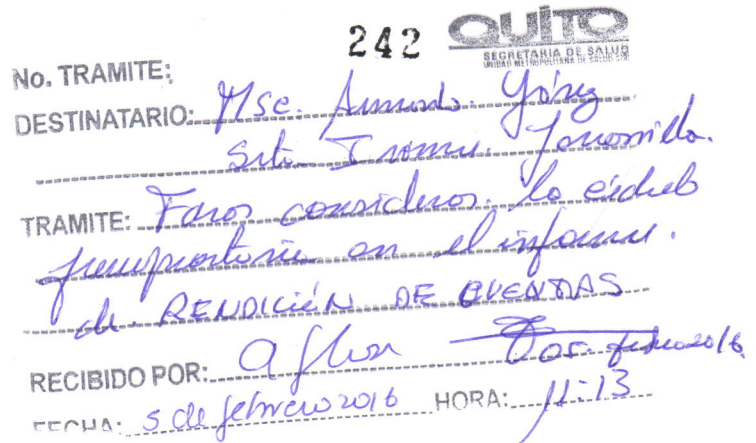 242 QUITO
SECRETARIA DE SALUD
UNIDAD METROPOLITANA DE SALUD SUR
No. TRAMITE:
DESTINATARIO: Msc. Armando. Yánez
Srta.
TRAMITE: Favor considerar. la cédula
presupuestaria en el informe.
de. RENDICIÓN DE CUENTAS
RECIBIDO POR: 05. febrero 2016
FECHA: 5 de febrero 2016 HORA: 11:13